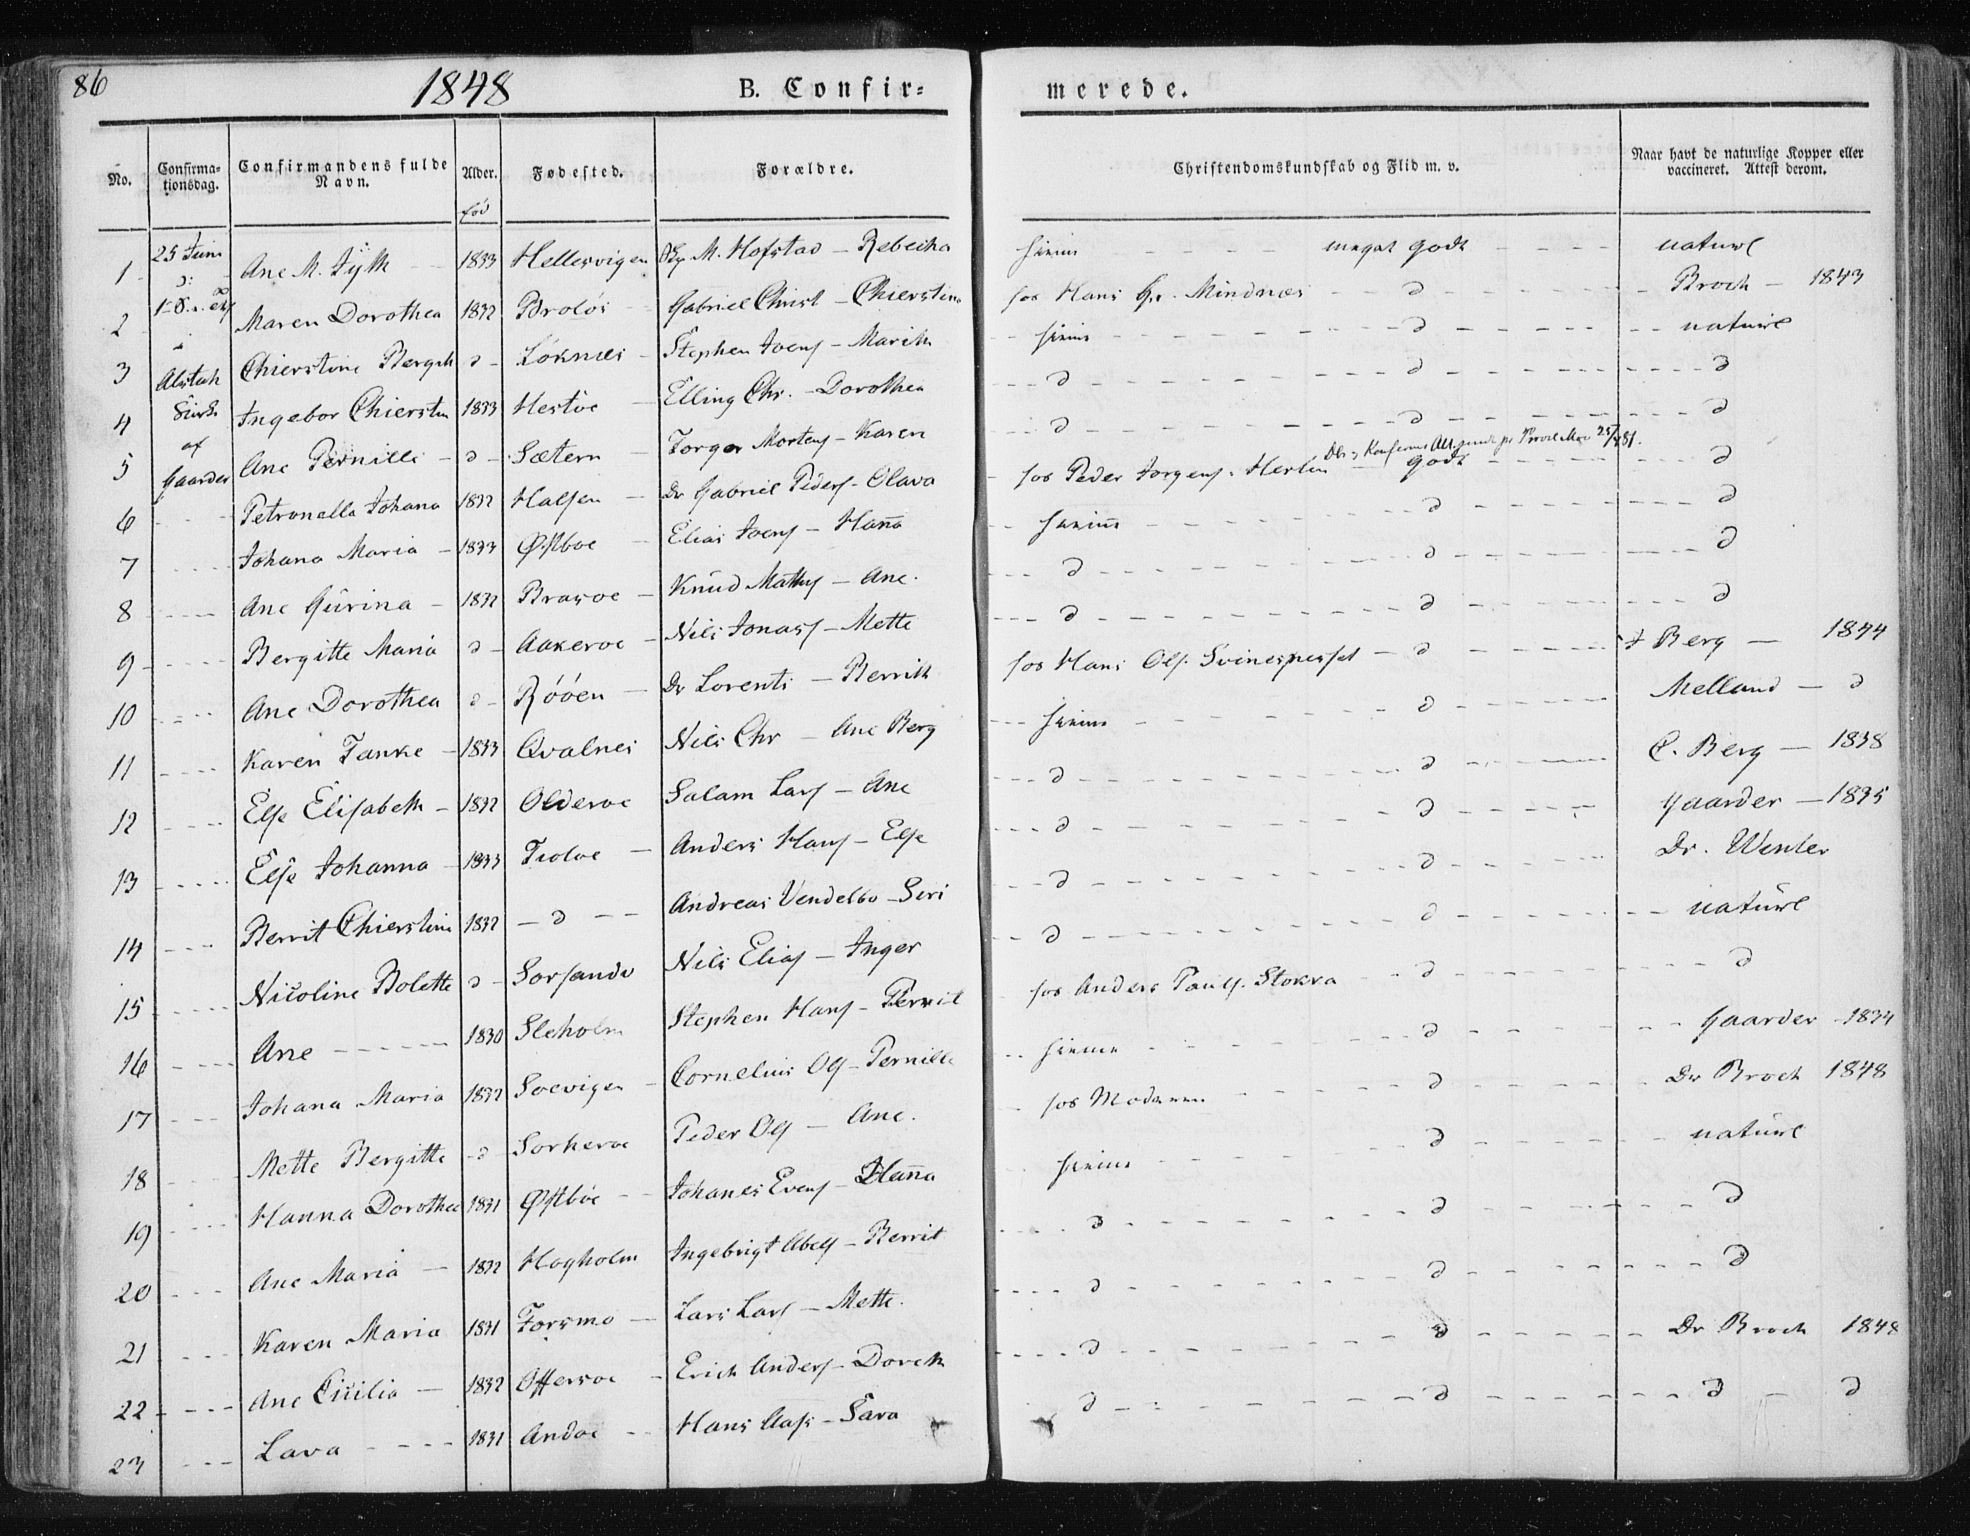 86
1848
B. Confir-
merede.
No. Confirmationsdag. Confirmandens fulde Navn. Alder. Fødested. Forældre. Christendomskundskab og Flid m. v. Naar havt de naturlige Kopper eller vaccineret. Attest derom.
fød
25 Juni
Alstah
Kirke
af
Gaarder
1 Ane M. 1833 Hellesvigen M. Hofstad - Rebecka hjeme meget godt naturl
2 Maren Dorothea 1832 Broløs Gabriel Christ - Chierstina hos Hans Gr. Mindnæs d Broch - 1843
3 Chierstine Bergith d Løknæs Stephen Joens - Marith hjeme d naturl
4 Ingebor Chierstin 1833 Hestøe Elling Chr. - Dorothea d d d
5 Ane Pernille d Sætern Torger Mortens - Karen d d d
6 Petronella Johana 1832 Halsen Dr Gabriel Peders - Olava hos Peder Jorgens. godt d
7 Johana Maria 1833 Østboe Elias Joens - Hana hjeme d d
8 Ane Gurina 1832 Brasøe Knud Mathis - Ane. d d d
9 Bergitte Maria d Aakeroe Nils Jonas - Mette d d d
10 Ane Dorothea d Røøen Dr Lorents - Berrith hos Hans Ols. Svinespesset d Berg - 1844
11 Karen Tanke 1833 Qvalnes Nils Chr - Ane Berg hjeme d Melland - d
12 Else Elisabeth 1832 Olderoe Salam Lars - Ane d d C. Berg - 1838
13 Else Johanna 1833 Tioløe Anders Hans - Else d d Gaarder - 1835
14 Berrit Chierstine 1832 d Andreas Vendelbo - Siri d d Dr. Winter
15 Nicoline Bolette d Sorsande Nils Elias - Inger d d naturl
16 Ane 1830 Sleholm Stephen Hans - Berrit hos Anders Pauls. Stokva d d
17 Johana Maria 1832 Soevigen Cornelius Ols - Pernille hjeme d Gaarder 1834
18 Mette Bergitte d Sorheroe Peder Ols - Ane. hos Moderen d Dr Broch 1848
19 Hanna Dorothea 1831 Østbøe Johanes Evens - Hana hjeme d naturl
20 Ane Maria 1832 Hogholm Ingebrigt Abels - Berrit d d d
21 Karen Maria 1831 Forsmo Lars Lars - Mette. d d d
22 Ane Cicilia 1832 Offersoe Erich Anders - Doreth d d Dr Broch 1848
23 Lava 1831 Andøe Hans - Sara d d d d